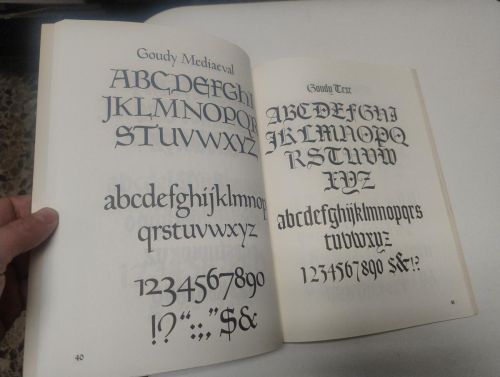 Goudy Mediaeval
ABCDEFGHI
JKLMNOPQR
STUVWXYZ
abcdefghijklmnop
qrstuvwxyz
1234567890
!?“:;,”$&
40
Goudy Text
ABCDEFGHI
JKLMNOPQ
RSTUVW
XYZ
abcdefghijklmnopqrs
tuvwxyz
1234567890 $&!?